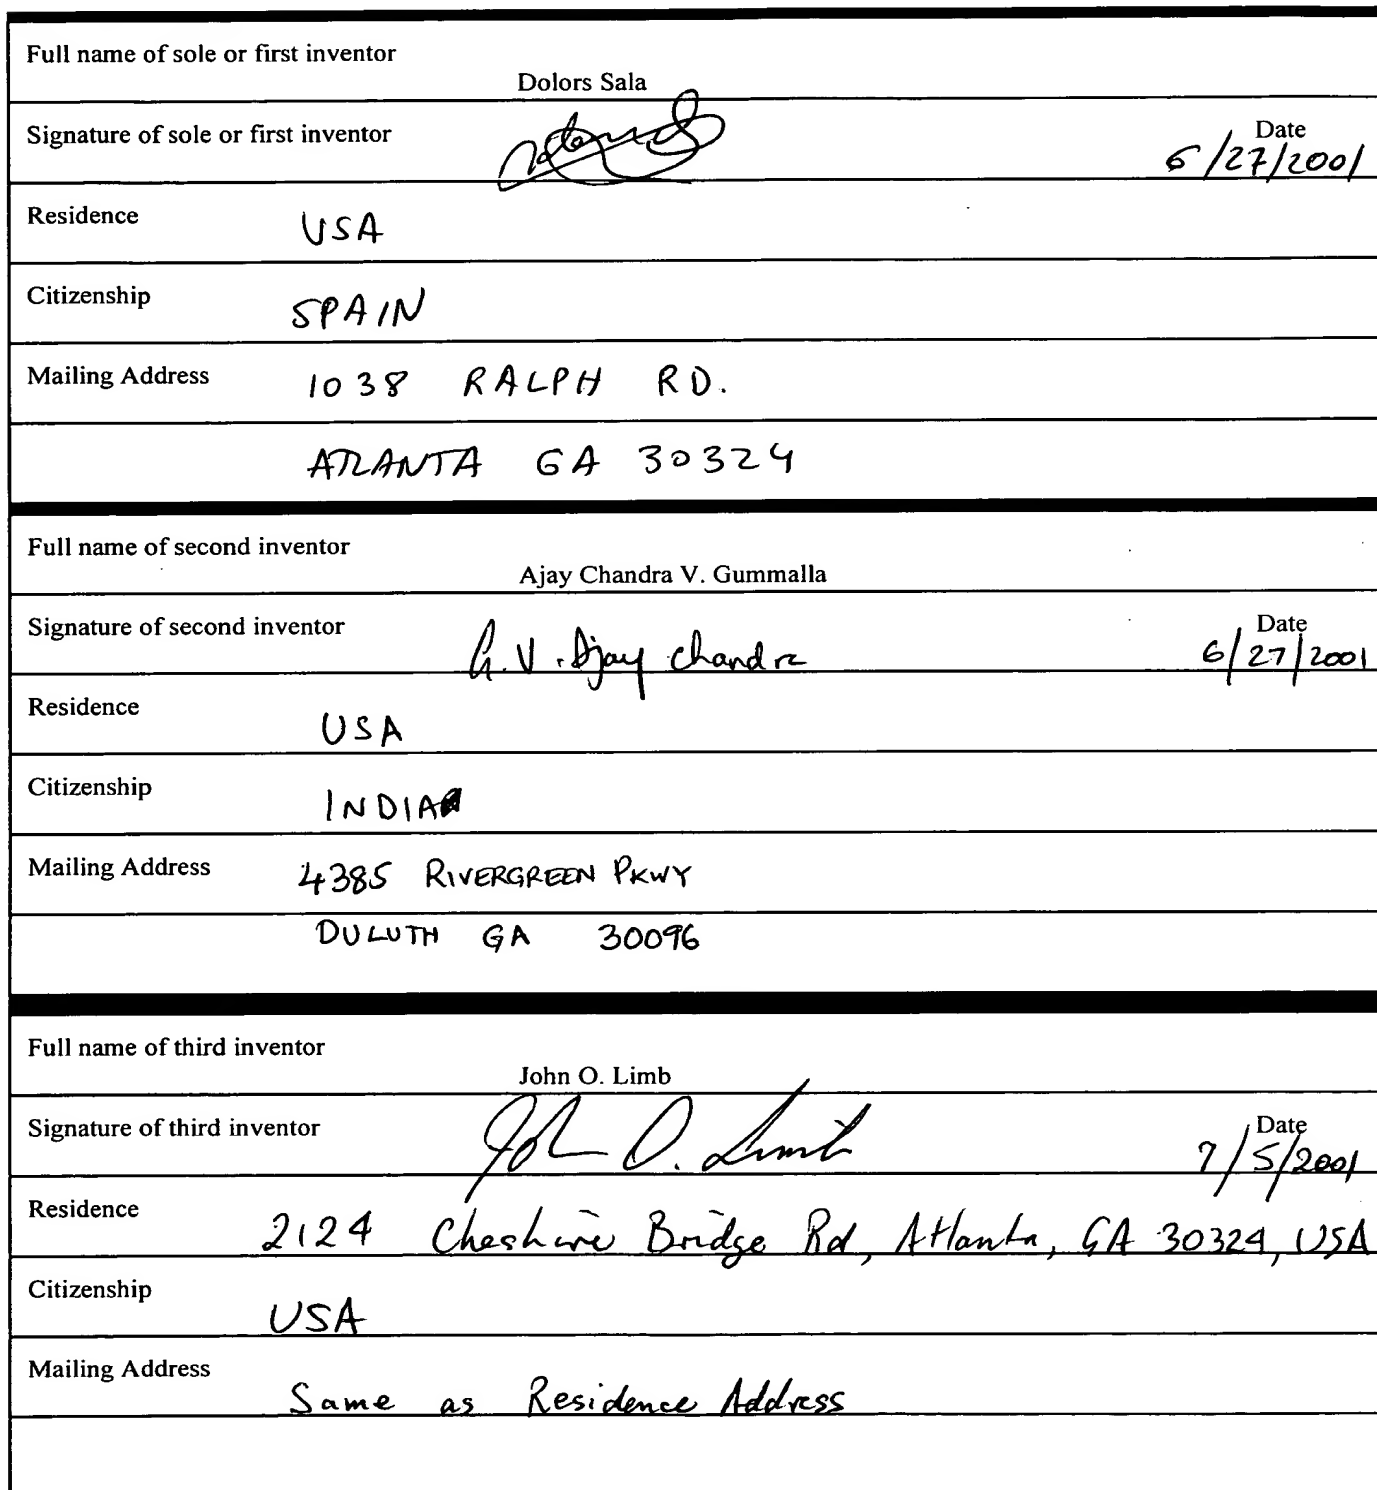 Full name of sole or first inventor
Dolors Sala
Signature of sole or first inventor
Date
6/27/2001
Residence USA
Citizenship SPAIN
Mailing Address 1038 RALPH RD.
ATLANTA GA 30324
Full name of second inventor
Ajay Chandra V. Gummalla
Signature of second inventor G.V. Ajay Chandra
Date
6/27/2001
Residence USA
Citizenship INDIA
Mailing Address 4385 RIVERGREEN PKWY
DULUTH GA 30096
Full name of third inventor
John O. Limb
Signature of third inventor John O. Limb
Date
7/5/2001
Residence 2124 Cheshire Bridge Rd, Atlanta, GA 30324, USA
Citizenship USA
Mailing Address Same as Residence Address